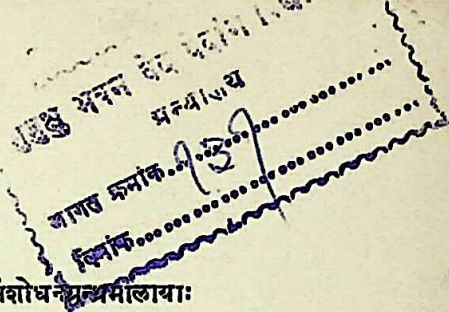 मुमुक्षु भवन वेद वेदांग
ग्रन्थालय
आगत क्रमांक..१३१
दिनांक
शोधनग्रन्थमालायाः